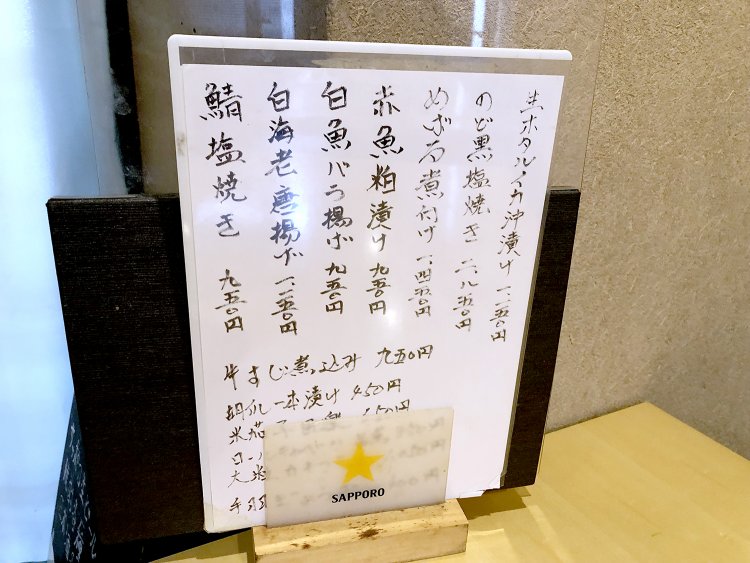 生ホタルイカ沖漬け 一、一五〇円
のど黒塩焼き 二、八五〇円
めばる煮付け 一、四五〇円
赤魚粕漬け 九五〇円
白魚バラ揚げ 九五〇円
白海老唐揚げ 一、一五〇円
鯖塩焼き 九五〇円
牛すじ煮っ込み 九五〇円
胡瓜一本漬け 450円
米茄
大
手羽
SAPPORO